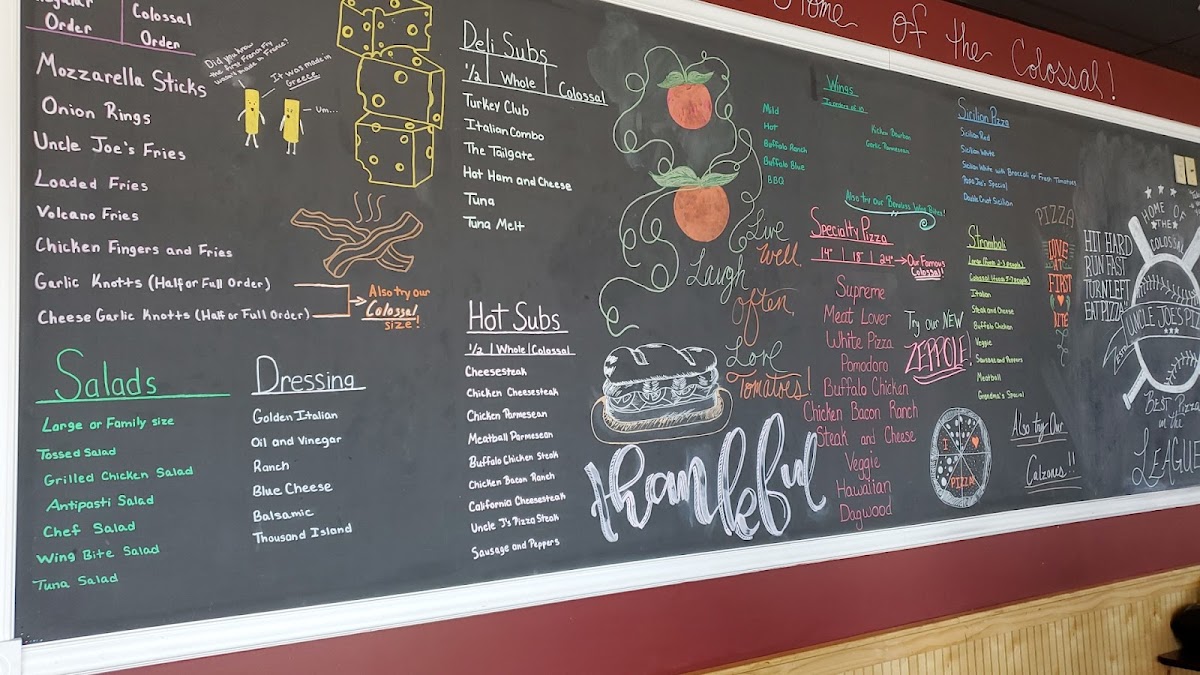 Home of the Colossal!
Regular Order
Colossal Order
Mozzarella Sticks
Onion Rings
Uncle Joe's Fries
Loaded Fries
Volcano Fries
Chicken Fingers and Fries
Garlic Knotts (Half or Full Order)
Cheese Garlic Knotts (Half or Full Order)
Also try our
Colossal
size!
Did you know
the first French Fry
wasn't made in France?
It was made in
Greece
Um...
Salads
Large or Family size
Tossed Salad
Grilled Chicken Salad
Antipasti Salad
Chef Salad
Wing Bite Salad
Tuna Salad
Dressing
Golden Italian
Oil and Vinegar
Ranch
Blue Cheese
Balsamic
Thousand Island
Deli Subs
1/2 | Whole | Colossal
Turkey Club
Italian Combo
The Tailgate
Hot Ham and Cheese
Tuna
Tuna Melt
Hot Subs
1/2 | Whole | Colossal
Cheesesteak
Chicken Cheesesteak
Chicken Parmesean
Meatball Parmesean
Buffalo Chicken Steak
Chicken Bacon Ranch
California Cheesesteak
Uncle J's Pizza Steak
Sausage and Peppers
Live
Well
Laugh
often
Love
Tomatoes!
thankful
Wings
In orders of 10
Mild
Hot
Buffalo Ranch
Buffalo Blue
BBQ
Kickin Bourbon
Garlic Parmesean
Also try our Boneless Wing Bites!
Specialty Pizza
14" | 18" | 24"
Our Famous
Colossal!
Supreme
Meat Lover
White Pizza
Pomodoro
Buffalo Chicken
Chicken Bacon Ranch
Steak and Cheese
Veggie
Hawaiian
Dagwood
Try our NEW
ZEPPOLE!
Sicilian Pizza
Sicilian Red
Sicilian White
Sicilian White with Broccoli or Fresh Tomatoes
Papa Joe's Special
Double Crust Sicilian
Stromboli
Large (Feeds 2-3 people)
Italian
Steak and Cheese
Buffalo Chicken
Veggie
Sausage and Peppers
Meatball
Grandma's Special
I
PIZZA
Also try Our
Calzones!!
PIZZA
LOVE
AT
FIRST
BITE
HIT HARD
RUN FAST
TURN LEFT
EAT PIZZA
HOME OF
THE
COLOSSAL
UNCLE JOE'S
BEST PIZZA
IN THE
LEAGUE